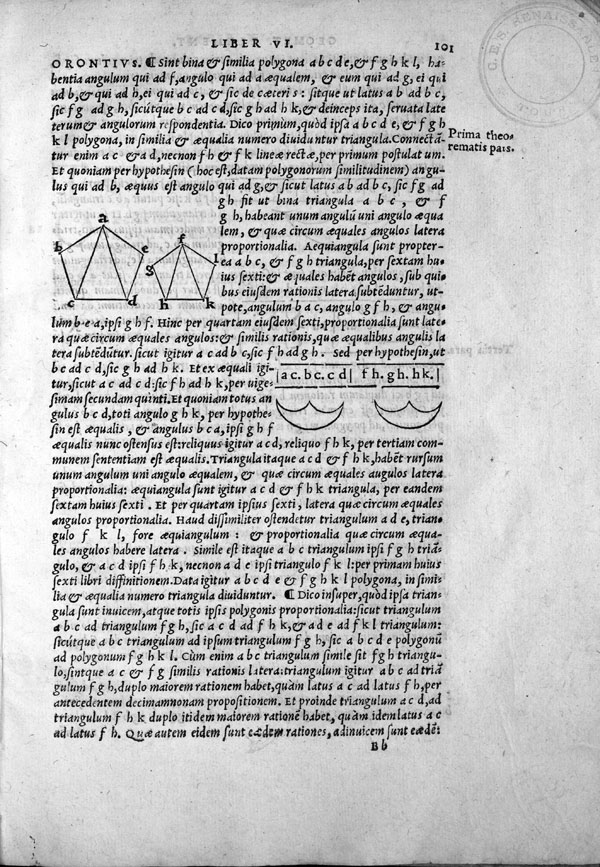 LIBER VI.
101
ORONTIVS. ¶ Sint bina & similia polygona a b c d e, & f g h k l, ha-
bentia angulum qui ad f, angulo qui ad a æqualem, & eum qui ad g, ei qui
ad b, & qui ad h, ei qui ad c, & sic de cæteris: sitque ut latus a b ad b c,
sic f g ad g h, sicútque b c ad c d, sic g h ad h k, & deinceps ita, seruata late
terum & angulorum respondentia. Dico primùm, quòd ipsa a b c d e, & f g h
k l polygona, in similia & æqualia numero diuiduntur triangula. Connectā-
tur enim a c & a d, necnon f h & f k lineæ rectæ, per primum postulatum.
Prima theo-
rematis pars.
Et quoniam per hypothesin (hoc est, datam polygonorum similitudinem) angu-
lus qui ad b, æquus est angulo qui ad g, & sicut latus a b ad b c, sic f g ad
g h fit ut bina triangula a b c, & f
g h, habeant unum angulū uni angulo æqua
lem, & quæ circum æquales angulos latera
proportionalia. Aequiangula sunt propter-
ea a b c, & f g h triangula, per sextam hu-
ius sexti: & æquales habēt angulos, sub qui
bus eiusdem rationis latera subtēduntur, ut-
pote, angulum b a c, angulo g f h, & angu-
a
b
e
c
d
f
g
l
h
k
lum b c a, ipsi g h f. Hinc per quartam eiusdem sexti, proportionalia sunt late-
ra quæ circum æquales angulos: & similis rationis, quæ æqualibus angulis la
tera subtēdūtur. sicut igitur a c ad b c, sic f h ad g h. Sed per hypothesin, ut
b c ad c d, sic g h ad h k. Et ex æquali igi-
tur, sicut a c ad c d: sic f h ad h k, per uige-
simam secundam quinti. Et quoniam totus an
gulus b c d, toti angulo g h k, per hypothe-
sin est æqualis, & angulus b c a, ipsi g h f
a c. b c. c d | f h. g h. h k. |
æqualis nunc ostensus est: reliquus igitur a c d, reliquo f h k, per tertiam com-
munem sententiam est æqualis. Triangula itaque a c d & f h k, habēt rursum
unum angulum uni angulo æqualem, & quæ circum æquales augulos latera
proportionalia: æquiangula sunt igitur a c d & f h k triangula, per eandem
sextam huius sexti. Et per quartam ipsius sexti, latera quæ circum æquales
angulos proportionalia. Haud dissimiliter ostendetur triangulum a d e, trian-
gulo f k l, fore æquiangulum: & proportionalia quæ circum æqua-
les angulos habere latera. Simile est itaque a b c triangulum ipsi f g h triā-
gulo, & a c d ipsi f h k, necnon a d e ipsi triangulo f k l: per primam huius
sexti libri diffinitionem. Data igitur a b c d e & f g h k l polygona, in simi-
lia & æqualia numero triangula diuiduntur. ¶ Dico insuper, quòd ipsa trian-
gula sunt inuicem, atque totis ipsis polygonis proportionalia: sicut triangulum
a b c ad triangulum f g h, sic a c d ad f h k, & a d e ad f k l triangulum:
sicútque a b c triangulum ad ipsum triangulum f g h, sic a b c d e polygonū
ad polygonum f g h k l. Cùm enim a b c triangulum simile sit f g h triangu-
lo, sintque a c & f g similis rationis latera: triangulum igitur a b c ad triā
gulum f g h, duplo maiorem rationem habet, quàm latus a c ad latus f h, per
antecedentem decimamnonam propositionem. Et proinde triangulum a c d, ad
triangulum f h k duplo itidem maiorem rationē habet, quàm idem latus a c
ad latus f h. Quæ autem eidem sunt eædem rationes, adinuicem sunt eædē:
B b